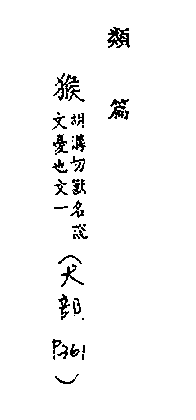 類篇
猴胡溝切獸名說文夒也文一(犬部P.361)